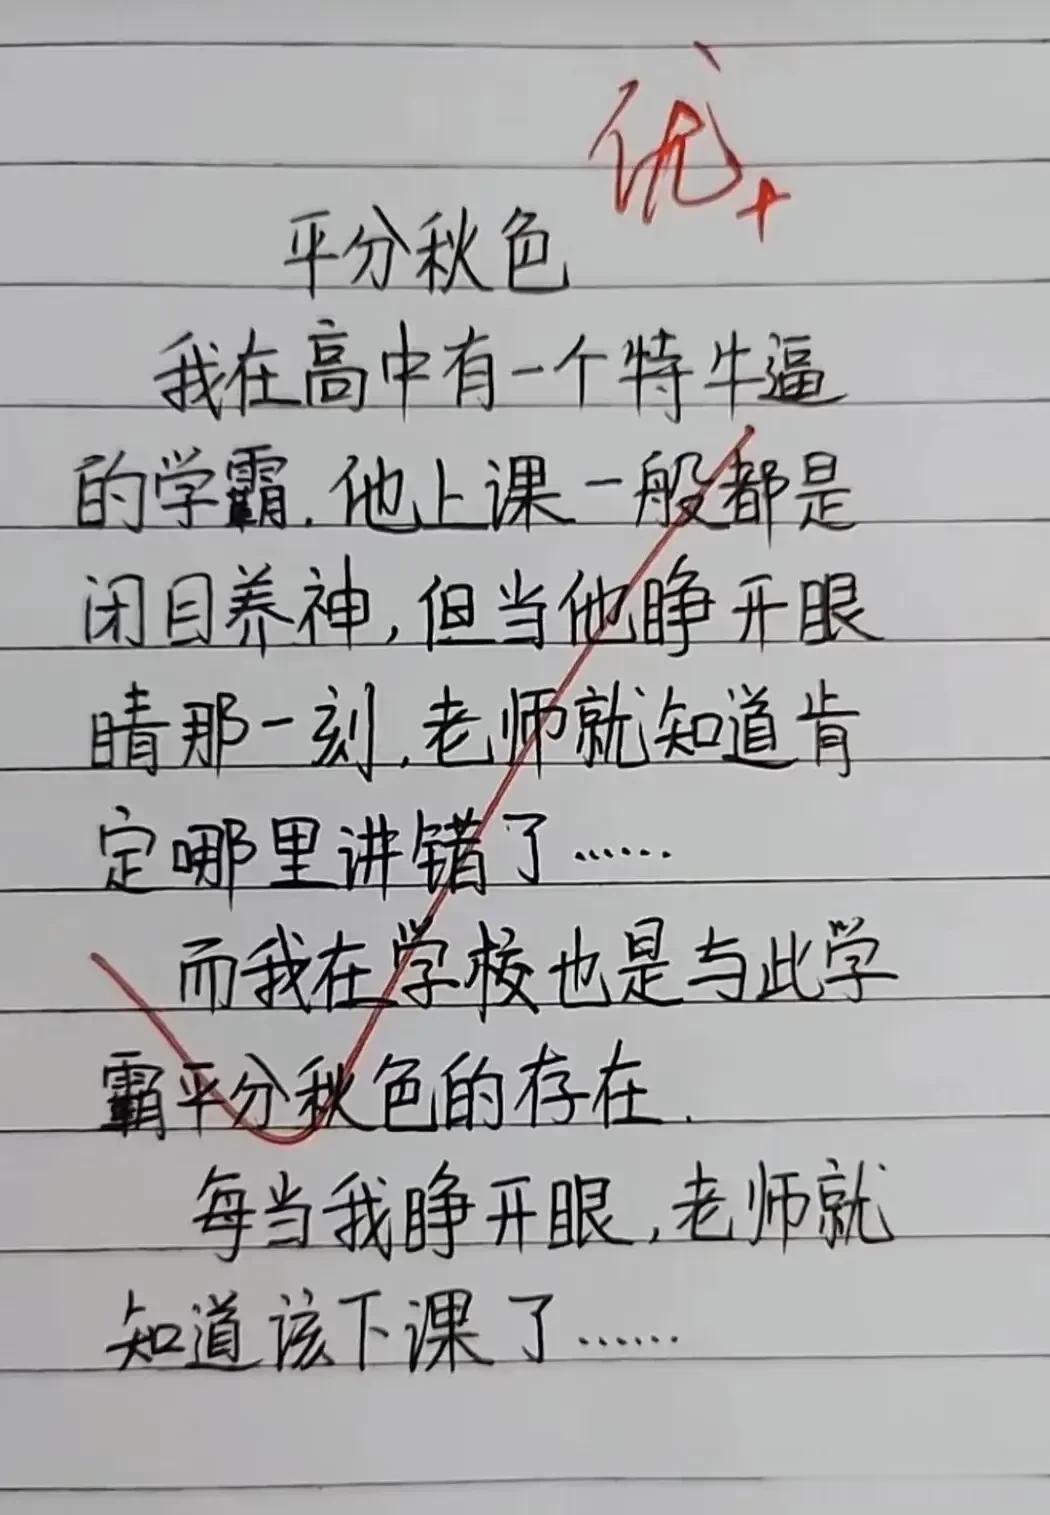 优+
平分秋色
我在高中有一个特牛逼
的学霸.他上课一般都是
闭目养神,但当他睁开眼
睛那一刻,老师就知道肯
定哪里讲错了……
而我在学校也是与此学
霸平分秋色的存在.
每当我睁开眼,老师就
知道该下课了……